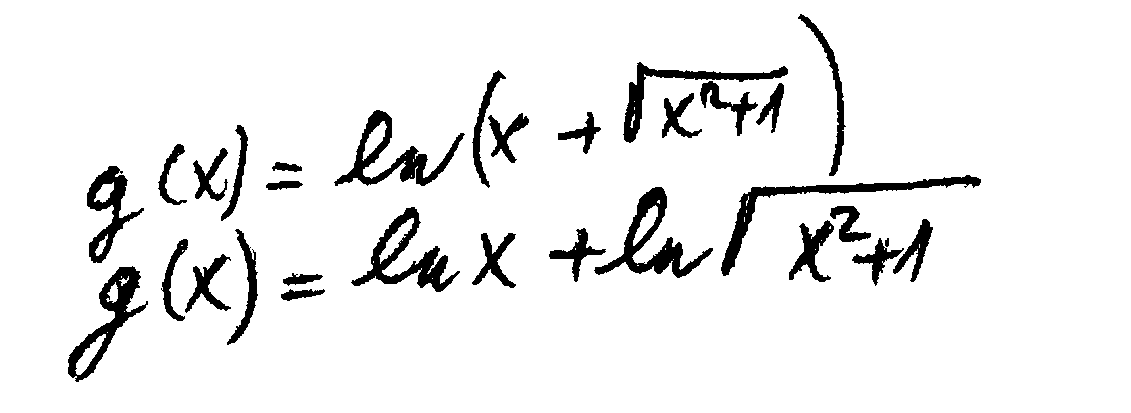 g(x) = ln(x + √(x²+1))
g(x) = ln x + ln √(x²+1)